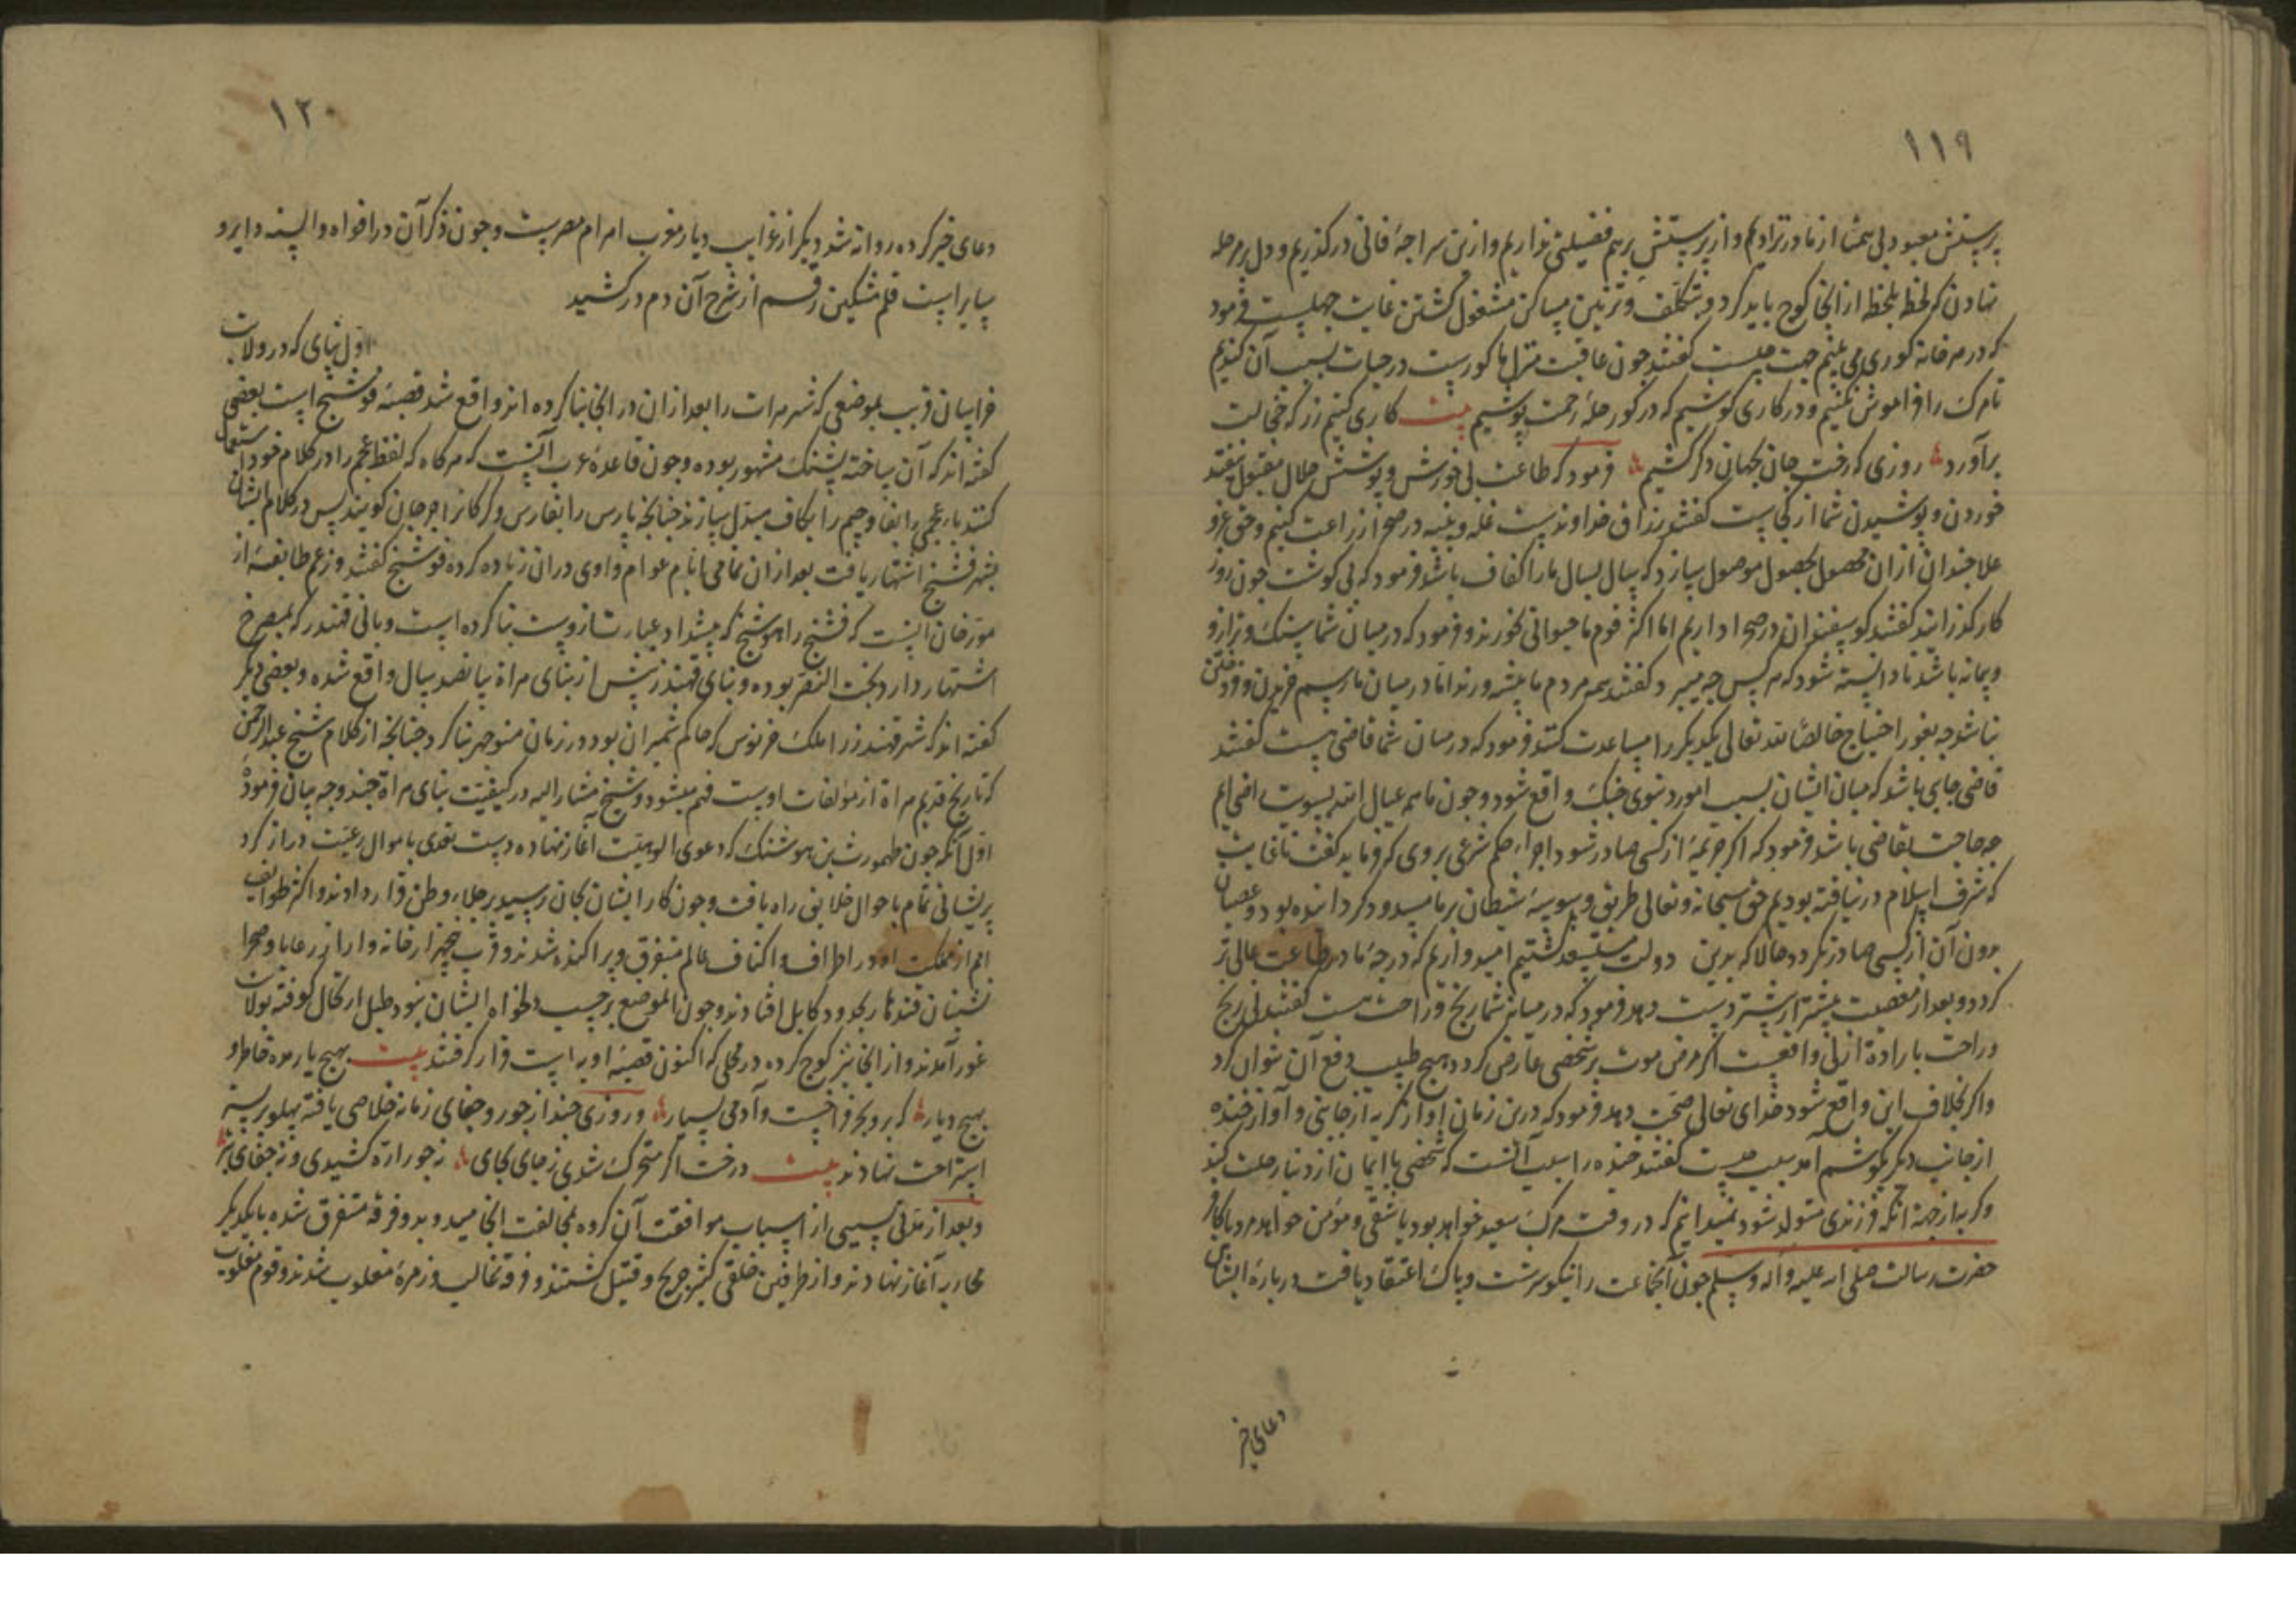 ۱۱۹
پرستش معبود بی همتا از مادر نزادیم و از پرستش برهم فضیلتی نداریم و ازین سراچهٔ فانی درگذریم و دل بر مرحله
نهادن که لحظه بلحظه از انجا کوچ باید کرد و بتکلف و تزیین مساکن مشغول گشتن غایت جهلست فرمود
که در هر خانه کوری می بینم جهت چیست گفتند چون عاقبت منزل ما کورست در حیات بسبب آن کندیم
تا مرک را فراموش نکنیم و در کاری کوشیم که در کور حلهٔ رحمت پوشیم بیت کاری کنیم زر که خجالت
برآورد روزی که رخت جان بجهان دکر کشیم فرمود که طاعت بی خورش و پوشش حلال مقبول نیفتد
خوردن و پوشیدن شما از کجاست گفتند رزاق خداوندست غله و پنبه در صحرا زراعت کنیم و حق عز و
علا چندان از ان محصول بحصول موصول سازد که سال بسال ما را کفاف باشد فرمود که بی کوشت چون روز
کار گذرانید گفتند کوسفندان در صحرا داریم اما اکثر قوم ما حیوانی نخورند و فرمود که در میان شما سنک و ترازو
و پیمانه باشد تا دانسته شود که هر کس چه میبرد گفتند همه مردم ما پیشه ورند اما در میان ما رسم خریدن و فروختن
نباشد چه بغور احتیاج خالصا لله تعالی یکدیکر را مساعدت کنند فرمود که در میان شما قاضی هست گفتند
قاضی جایی باشد که میان ایشان بسبب امور دنیوی جنک واقع شود و چون ما همه عیال الله بسویت راضی ایم
چه حاجت بقاضی باشد فرمود که اکر جریمهٔ از کسی صادر شود اجراء حکم شرعی بر وی که فرماید گفتند تا غایت
که شرف اسلام درنیافته بودیم حق سبحانه و تعالی طریق وسوسهٔ شیطان بر ما مسدود کردانیده بود و عصیان
بدون آن از کسی صادر نکردد حالا که بدین دولت مستسعد گشتیم امید واریم که درجهٔ ما در طاعت عالی تر
کردد و بعد از معصیت بیشتر از پیشتر دست دهد فرمود که در میانه شما رنج و راحت هست گفتند بلی رنج
و راحت بارادهٔ ازلی واقعست اکر مرض موت بر شخصی عارض کردد هیچ طبیب دفع آن نتوان کرد
و اکر بخلاف این واقع شود خدای تعالی صحت دهد فرمود که درین زمان آواز کریه از جانبی و آواز خنده
از جانب دیکر بکوشم آمد سبب چیست گفتند خنده را سبب آنست که شخصی با ایمان از دنیا رحلت کند
و کریه از جهة انکه فرزندی متولد شود نمیدانیم که در وقت مرک سعید خواهد بود یا شقی و مؤمن خواهد مرد یا کافر
حضرت رسالت صلی الله علیه و آله و سلم چون آنجماعت را نیکو سرشت و پاک اعتقاد یافت در بارهٔ ایشان
دعای خیر
۱۲۰
دعای خیر کرده روانه شد دیکر از غرایب دیار مغرب اهرام مصرست و چون ذکر آن در افواه و السنه دایر و
سایر است قلم مشکین رقم از شرح آن دم درکشید
اول بنای که در ولایت
خراسان قریب بموضعی که شهر هرات را بعد از ان در انجا بنا کرده اند واقع شد قصبهٔ فوشنج است بعضی
گفته اند که آن ساختهٔ پشنک مشهور بوده و چون قاعدهٔ عرب آنست که هر کاه که لفظ عجم را در کلام خود استعمال
کنند باء عجمی را بفا و جیم را بکاف مبدل سازند چنانچه پارس را بفارس و کرکان را جرجان کویند پس در کلام ایشان
بشهر فشنج اشتهار یافت بعد از ان تمامی انام عوام واوی در ان زیاده کرده فوشنج گفتند و زعم طایفهٔ از
مورخان اینست که فشنج را هوشنج که پیشداد عبارت ازوست بنا کرده است و بانی قهندز که بمصرخ
اشتهار دارد بخت النصر بوده و بنای قهندز پیش از بنای هراة بپانصد سال واقع شده و بعضی دیکر
گفته اند که شهر قهندز را ملک خرنوس که حاکم شمیران بود در زمان منوچهر بنا کرد چنانچه از کلام شیخ عبدالرحمن
که تاریخ قدیم هراة از مؤلفات اوست فهم میشود و شیخ مشار الیه در کیفیت بنای هراة چند وجه بیان فرموده
اول آنکه چون طهمورث بن هوشنک که دعوی الوهیت آغاز نهاده دست تعدی باموال رعیت دراز کرد
پریشانی تمام باحوال خلایق راه یافت و چون کار ایشان بجان رسید بر جلاء وطن قرار دادند و اکثر طوایف
امم از مملکت او در اطراف و اکناف عالم متفرق و پراکنده شدند و قرب پنجهزار خانه وار از رعایا و صحرا
نشینان قندهار بحدود کابل افتادند و چون الموضع بر حسب دلخواه ایشان نبود طبل ارتحال کوفته بولایت
غور آمدند و از انجا نیز کوچ کرده در محلی که اکنون قصبهٔ اوبه است قرار گرفتند بیت بهیچ یار مده خاطر و
بهیچ دیار که بر و بحر فراخست و آدمی بسیار و روزی چند از جور و جفای زمانه خلاصی یافته پهلو بر بستر
استراحت نهادند بیت درخت اکر متحرک شدی ز جای بجای نه جور اره کشیدی و نه جفای تبر
و بعد از مدتی بسببی از اسباب موافقت آن کروه بمخالفت انجامید و بدو فرقه متفرق شده با یکدیکر
محاربه آغاز نهادند و از طرفین خلقی کثیر جریح و قتیل کشتند و فرقهٔ غالب و زمرهٔ مغلوب شدند و قوم مغلوب